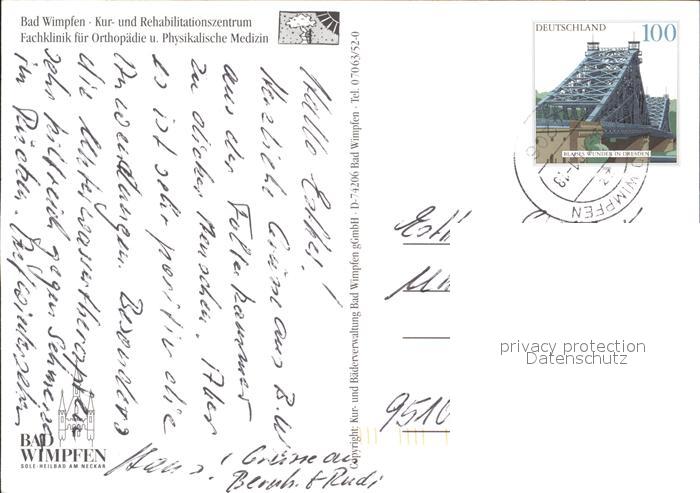 Bad Wimpfen · Kur- und Rehabilitationszentrum
Fachklinik für Orthopädie u. Physikalische Medizin
Hallo Esther!
Herzliche Grüsse aus B.W.
aus der Folterkammer
zu dicker Menschen. Aber
es ist sehr positiv die
Anwendungen. Besonders
die
sehr hilfreich gegen Schmerzen
im Rücken. Auf Wiedersehen
Hans!
Grüsse an
Bernh. & Rudi
BAD
WIMPFEN
SOLE-HEILBAD AM NECKAR
Copyright: Kur- und Bäderverwaltung Bad Wimpfen gGmbH · D-74206 Bad Wimpfen · Tel. 07063/52-0
DEUTSCHLAND 100
BLAUES WUNDER IN DRESDEN
WIMPFEN
Esth
9510
privacy protection
Datenschutz